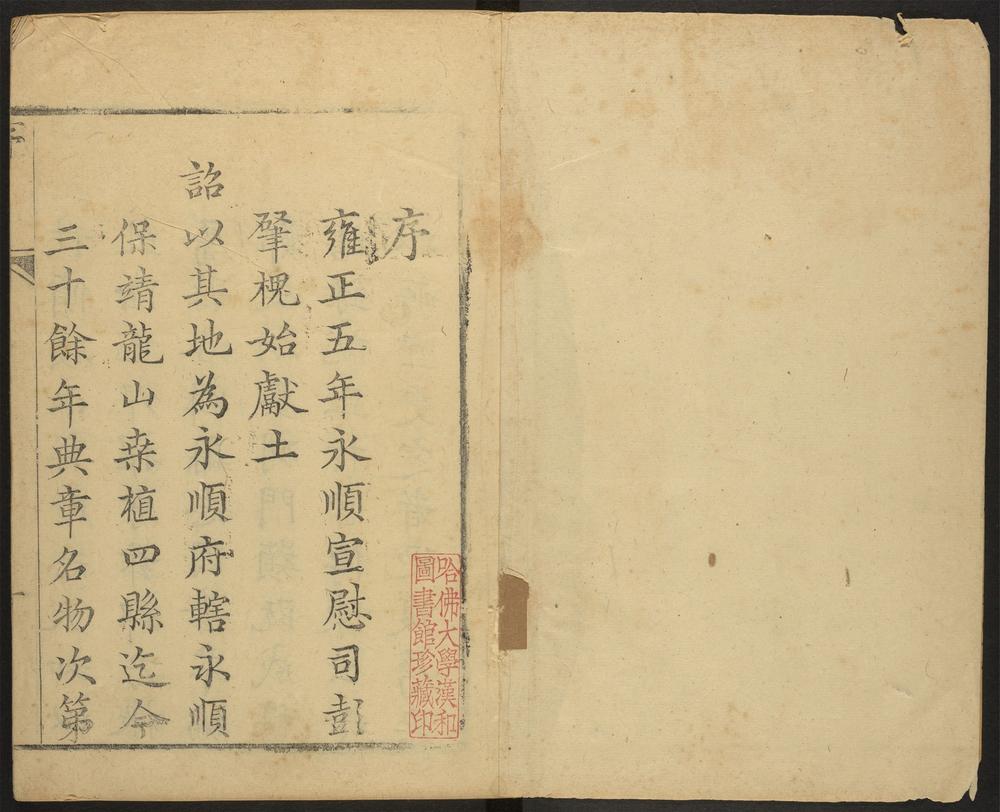 序
雍正五年永順宣慰司彭
肈槐始獻土
詔以其地為永順府轄永順
保靖龍山桒植四縣迄今
三十餘年典章名物次第
哈佛大學漢和
圖書館珍藏印